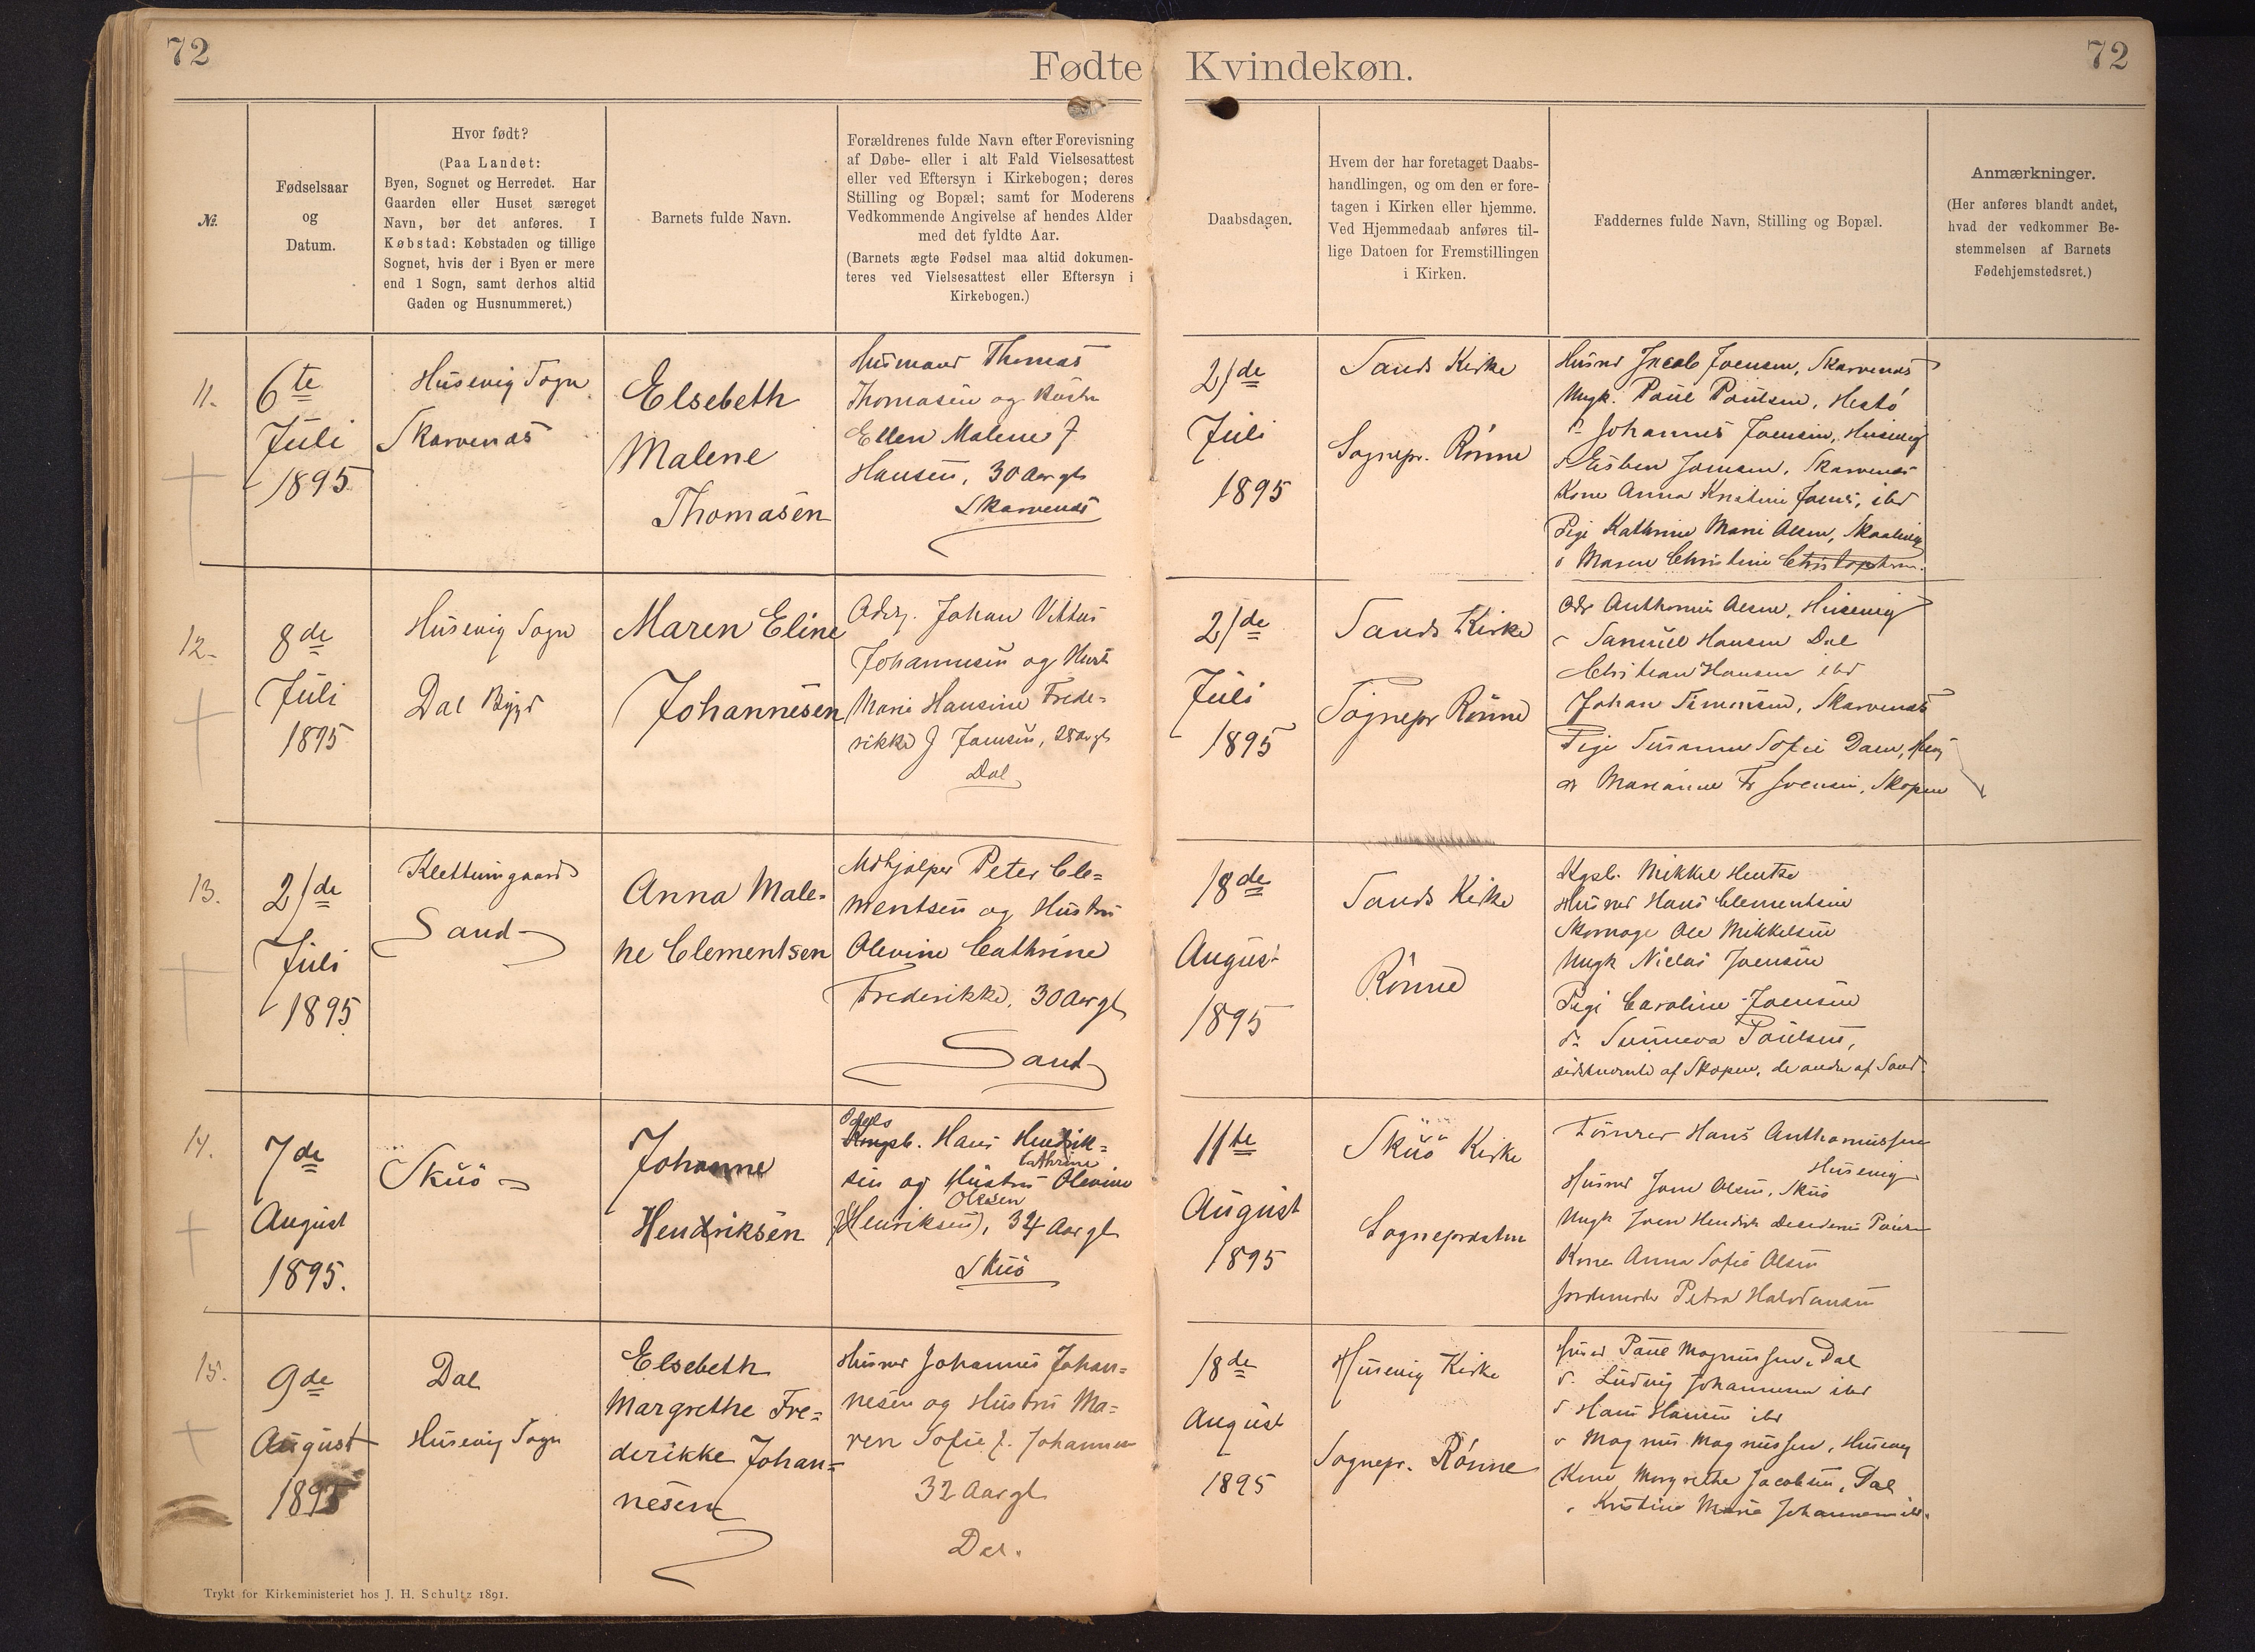 72
Fødte Kvindekøn.
72
№.
Fødselsaar
og
Datum.
Hvor født?
(Paa Landet:
Byen, Sognet og Herredet. Har
Gaarden eller Huset særeget
Navn, bør det anføres. I
Købstad: Købstaden og tillige
Sognet, hvis der i Byen er mere
end 1 Sogn, samt derhos altid
Gaden og Husnummeret.)
Barnets fulde Navn.
Forældrenes fulde Navn efter Forevisning
af Døbe- eller i alt Fald Vielsesattest
eller ved Eftersyn i Kirkebogen; deres
Stilling og Bopæl; samt for Moderens
Vedkommende Angivelse af hendes Alder
med det fyldte Aar.
(Barnets ægte Fødsel maa altid dokumen-
teres ved Vielsesattest eller Eftersyn i
Kirkebogen.)
Daabsdagen.
Hvem der har foretaget Daabs-
handlingen, og om den er fore-
tagen i Kirken eller hjemme.
Ved Hjemmedaab anføres til-
lige Datoen for Fremstillingen
i Kirken.
Faddernes fulde Navn, Stilling og Bopæl.
Anmærkninger.
(Her anføres blandt andet,
hvad der vedkommer Be-
stemmelsen af Barnets
Fødehjemstedsret.)
11.
6te
Juli
1895
Husevig Sogn
Skarvenæs
Elsebeth
Malene
Thomasen
Husmand Thomas
Thomasen og Hustru
Ellen Malene f
Hansen, 30 Aar gl
Skarvenæs
21de
Juli
1895
Sands Kirke
Sognepr. Rönne
Husmd Jacob Joensen, Skarvenæs
Ungk. Poul Poulsen, Hestö
Johannes Joensen, Husevig
Esben Joensen, Skarvenæs
Kone Anna Kristine Joens, ibd
Pige Kathrine Marie Olsen, Skaalevig
Maren Christine Christophersen.
12.
8de
Juli
1895
Husevig Sogn
Dal Bygd
Maren Eline
Johannesen
Johan Vittus
Johannesen og Hust
Marie Hansine Frede-
rikke f Joensen, 28 Ar gl
Dal
21de
Juli
1895
Sands Kirke
Sognepr Rönne
Anthonius Olsen, Husevig
Samuel Hansen Dal
Christian Hansen ibd
Johan Simonsen, Skarvenæs
Pige Susanne Sofie
Marianne Fr Joensen, Skopen
13.
21de
Juli
1895
Sand
Anna Male-
ne Clementsen
Peter Cle-
mentsen og Hustru
Olevine Cathrine
Frederikke, 30 Aar gl
Sand
18de
August
1895
Sands Kirke
Rönne
Kgsb. Mikkel Hentze
Husmd Hans Clementsen
Skomage Ole Mikkelsen
Ungk Niclas Joensen
Pige Caroline Joensen
do Sunneva Poulsen,
sidstnævnte af Skopen, de andre af Sand.
14.
7de
August
1895.
Skúö
Johanne
Hendriksen
Odels
Kongsb. Hans Hendrik-
Cathrine
sen og Hustru Olevine
Olesen
f (Henriksen), 34 Aar gl
Skúö
11te
August
1895
Skúö Kirke
Sognepræsten
Tömrer Hans Anthoniussen
Husevig
Husmd Joen Olsen, Skuö
Ungk Joen Hendrik
Kone Anna Sofie Olsen
Jordemoder Petra Halvdansen
15.
9de
August
1895
Dal
Husevig Sogn
Elsebeth
Margrethe Fre-
derikke Johan-
nesen
Husmd Johannes Johan-
nesen og Hustru Ma-
ren Sofie f. Johannesen
32 Aar gl
Dal.
18de
August
1895
Husevig Kirke
Sognepr. Rönne
Husmd Poul Magnussen, Dal
d. Ludvig Johannesen ibd
d Hans Hansen ibd
Magnus Magnussen, Husevig
Kone Margrethe Jacobsen, Dal
Kristine Marie Johannesen ibd.
Trykt for Kirkeministeriet hos J. H. Schultz 1891.